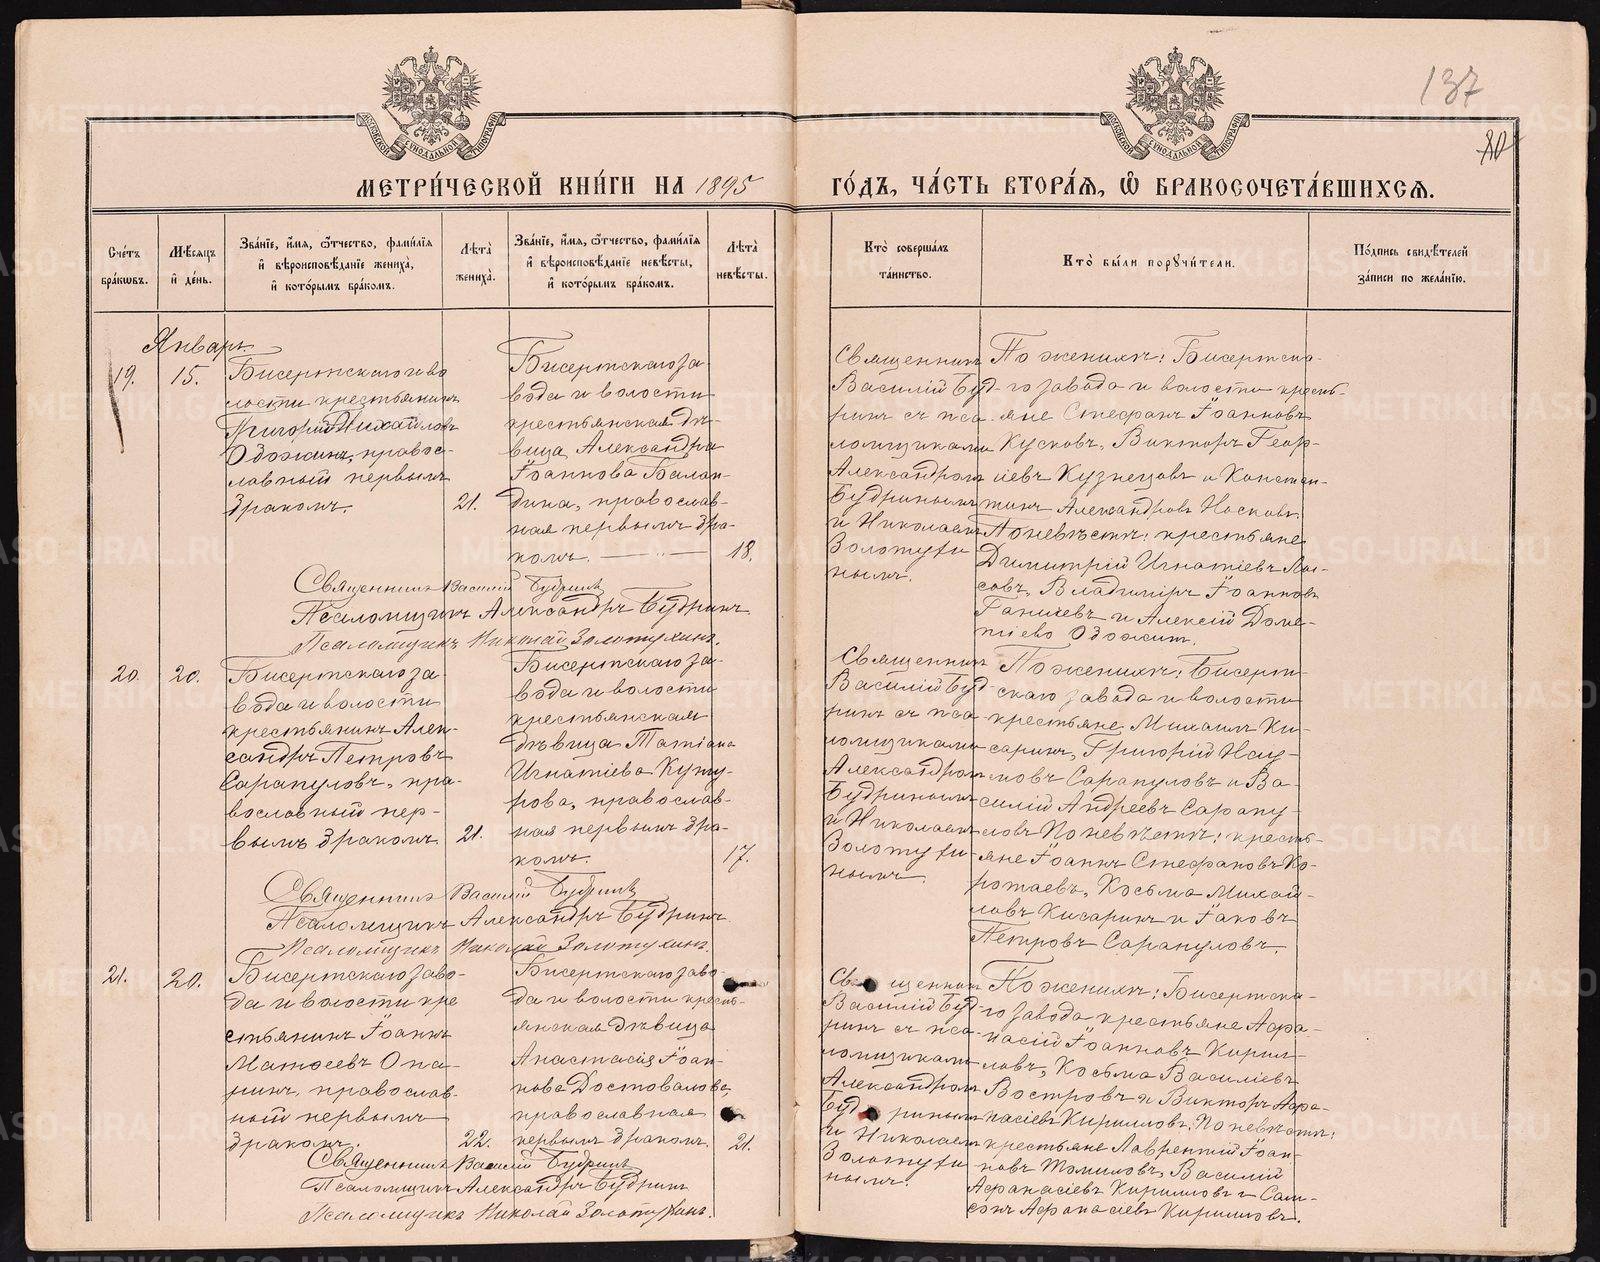 137
80
МЕТРИ́ЧЕСКОЙ КНИ́ГИ НА 1895
ГО́ДЪ, ЧА́СТЬ ВТОРА́Я, Ѡ҆ БРАКОСОЧЕТА́ВШИХСЯ.
Сче́тъ бра́ковъ.
Мѣ́сяцъ и҆ де́нь.
Зва́нїе, и҆́мя, ѻ҆́тчество, фами́лїя
и҆ вѣроисповѣ́данїе жениха̀,
и҆ кото́рымъ бра́комъ.
Лѣ́та жениха̀.
Зва́нїе, и҆́мя, ѻ҆́тчество, фами́лїя
и҆ вѣроисповѣ́данїе невѣ́сты,
и҆ кото́рымъ бра́комъ.
Лѣ́та невѣ́сты.
Кто̀ соверша́лъ
та́инство.
Кто̀ бы́ли порꙋчи́тели.
По́дпись свидѣ́телей
за́писи по жела́нїю.
Январь
19.
15.
Бисертскаго и во
лости крестьянинъ
Григорій Михайловъ
Одожинъ, правос-
лавный первымъ
бракомъ.
21.
Бисертскаго за
вода и волости
крестьянская дѣ-
вица Александра
Іоаннова Балан-
дина, православ-
ная первымъ бра-
комъ.
18.
Священникъ
Василій Буд-
ринъ съ пса-
ломщиками
Александромъ
Будринымъ
и Николаемъ
Золотухи
нымъ.
По женихѣ: Бисертска-
го завода и волости кресть-
яне Стефанъ Іоанновъ
Кусковъ, Викторъ Геор-
гіевъ Кузнецовъ и Констан-
тинъ Александровъ Носковъ.
По невѣстѣ: крестьяне
Димитрій Игнатіевъ
Владиміръ Іоанновъ
Ганихевъ и Алексій Доме-
тіевъ Одожинъ.
Священникъ Василій Будринъ
Псаломщикъ Александръ Будринъ
Псаломщикъ Николай Золотухинъ.
20.
20.
Бисертскаго за-
вода и волости
крестьянинъ Алек-
сандръ Петровъ
Сарапуловъ, пра-
вославный пер-
вымъ бракомъ
21.
Бисертскаго за-
вода и волости
крестьянская
дѣвица Татіана
Игнатіева Куту-
рова, православ-
ная первымъ бра-
комъ.
17.
Священникъ
Василій Буд-
ринъ съ пса-
ломщиками
Александромъ
Будринымъ
и Николаемъ
Золотухи-
нымъ.
По женихѣ: Бисерт-
скаго завода и волости
крестьяне Михаилъ Ки-
саринъ, Григорій Нау-
мовъ Сарапуловъ и Ва-
силій Андреевъ Сарапу-
ловъ По невѣстѣ: кресть-
яне Іоаннъ Стефановъ Ко-
ротаевъ, Косьма Михай-
ловъ Кисаринъ и Іаковъ
Петровъ Сарапуловъ.
Священникъ Василій Будринъ
Псаломщикъ Александръ Будринъ
Псаломщикъ Николай Золотухинъ.
21.
20.
Бисертскаго заво-
да и волости кре
стьянинъ Іоаннъ
Матѳеевъ Опа-
ринъ, православ-
ный первымъ
бракомъ.
22.
Бисертскаго заво-
да и волости кресть-
янская дѣвица
Анастасія Іоан-
нова Достовалова,
православная
первымъ бракомъ.
21.
Священникъ
Василій Буд-
ринъ съ пса-
ломщиками
Александромъ
Будринымъ
и Николаемъ
Золотухи
нымъ.
По женихѣ: Бисертска-
го завода крестьяне Аѳа-
насій Іоанновъ Кирил-
ловъ, Косьма Василіевъ
Востровъ и Викторъ Аѳа-
насіевъ Кирилловъ. По невѣстѣ:
крестьяне Лаврентій Іоан-
новъ Томиловъ, Василій
Аѳанасіевъ Кирилловъ и Сам-
сонъ Аѳанасіевъ Кирилловъ.
Священникъ Василій Будринъ
Псаломщикъ Александръ Будринъ
Псаломщикъ Николай Золотухинъ.
METRIKI.GASO-URAL.RU